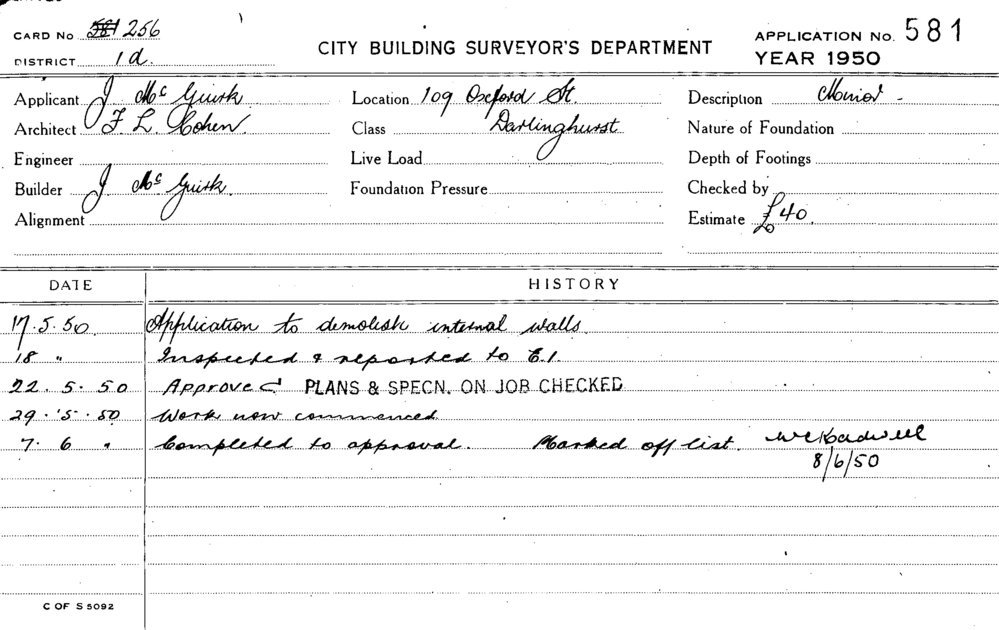 CARD No 581 256
CITY BUILDING SURVEYOR'S DEPARTMENT
APPLICATION No. 581
DISTRICT 1d.
YEAR 1950
Applicant J McGuirk
Location 109 Oxford St.
Description Minor -
Architect F L Cohen.
Class Darlinghurst
Nature of Foundation
Engineer
Live Load
Depth of Footings
Builder J McGuirk.
Foundation Pressure
Checked by
Alignment
Estimate £40.
DATE HISTORY
17.5.50 Application to demolish internal walls
18 " Inspected & reported to E.I.
22.5.50 Approved PLANS & SPECN. ON JOB CHECKED
29.5.50 Work now commenced
7.6 " Completed to approval. Marked off list.
8/6/50
C OF S 5092